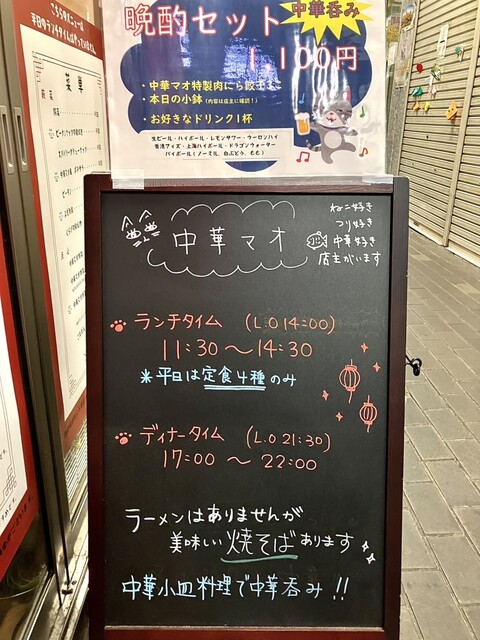 晩酌セット
中華呑み
1,100円
・中華マオ特製肉にら餃子
・本日の小鉢(内容は店主に確認!)
・お好きなドリンク1杯
生ビール・ハイボール・レモンサワー・ウーロンハイ
香港フィズ・上海ハイボール・ドラゴンウォーター
パイボール(ノーマル、白ぶどう、もも)
中華マオ
ねこ好き
つり好き
中華好き
店主がいます
ランチタイム (L.O 14:00)
11:30〜14:30
*平日は定食4種のみ
ディナータイム (L.O 21:30)
17:00 〜 22:00
ラーメンはありませんが
美味しい焼そばあります
中華小皿料理で中華呑み!!
菜単